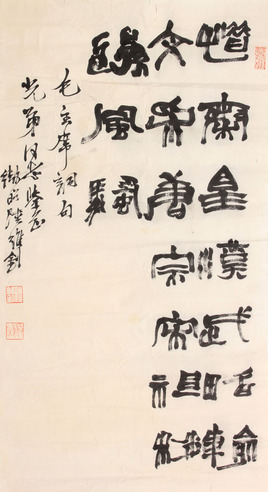 惜秦皇漢武略輸
文采唐宗宋祖稍
遜風騷
毛主席詞句
同志
陸維釗